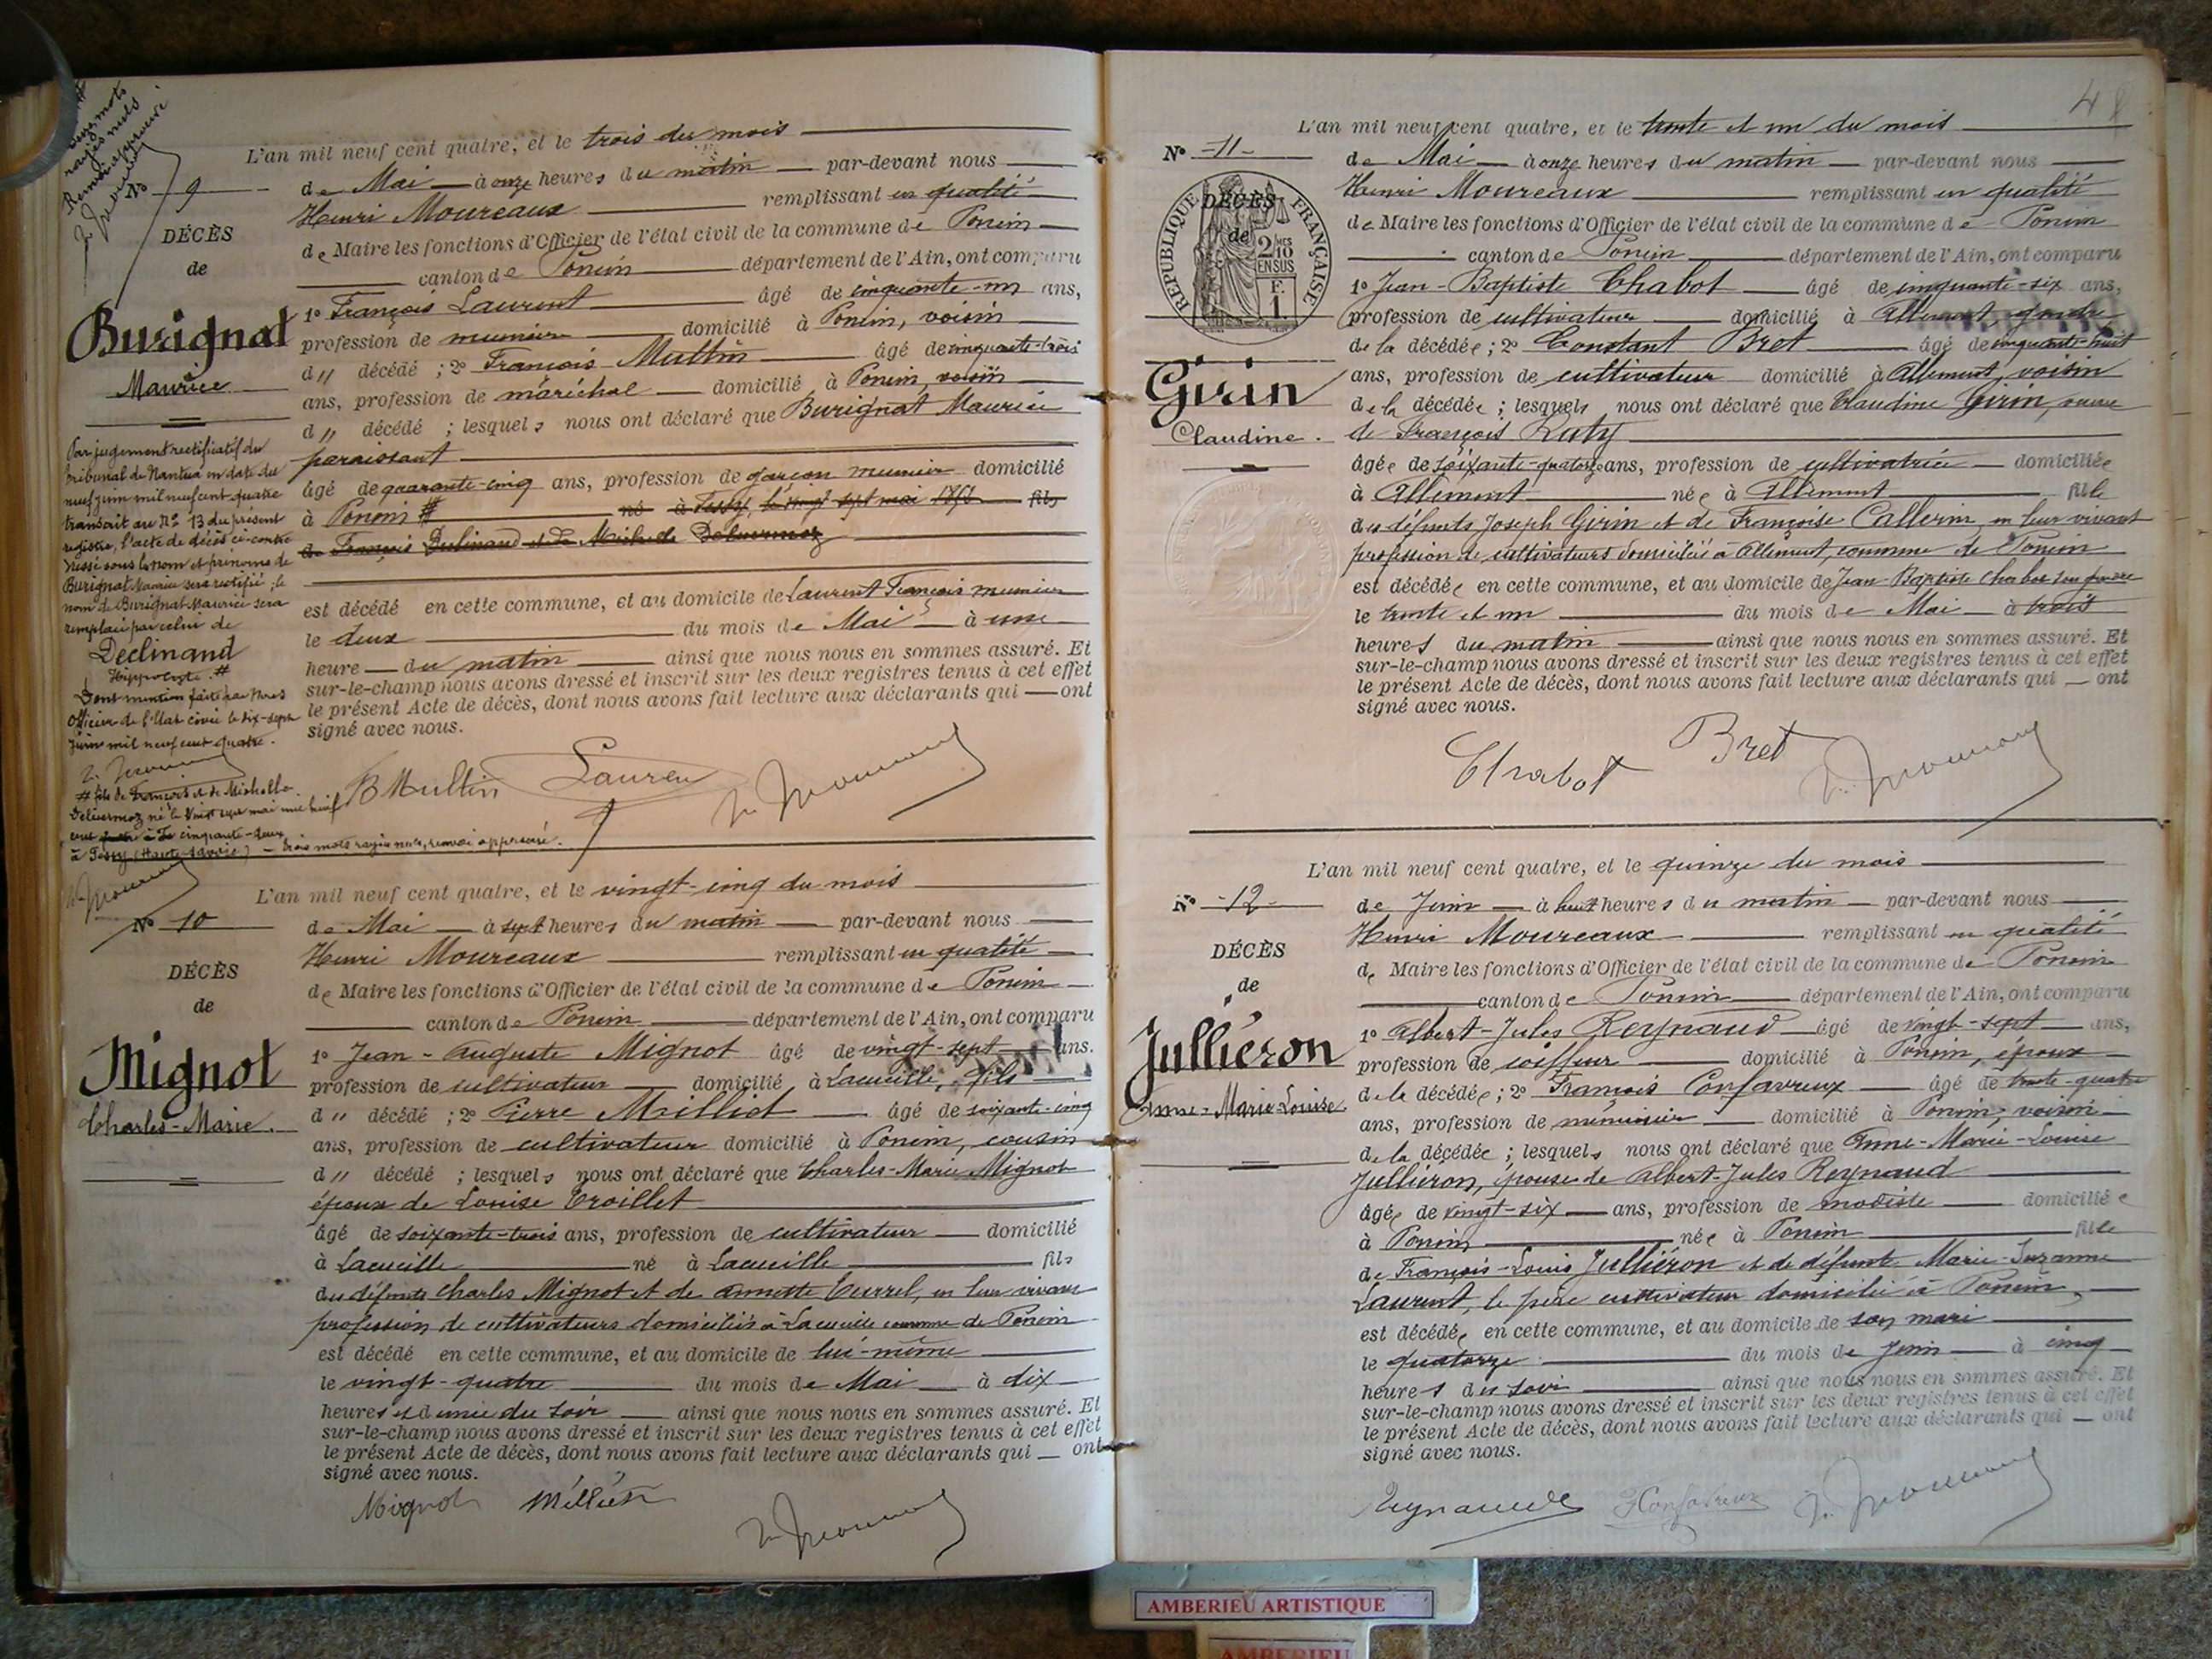 mots
rayés nuls
L'an mil neuf cent quatre, et le trois du mois
No 9
DÉCÈS
de
Burignat
Maurice
de Mai à onze heures du matin par-devant nous
Henri Moureaux remplissant en qualité
de Maire les fonctions d'Officier de l'état civil de la commune de Poncin
canton de Poncin département de l'Ain, ont comparu
1º François Laurent âgé de cinquante-un ans,
profession de meunier domicilié à Poncin, voisin
d" décédé ; 2º François Multin âgé de cinquante-trois
ans, profession de maréchal domicilié à Poncin, voisin
d" décédé ; lesquels nous ont déclaré que Burignat Maurice
paraissant
âgé de quarante-cinq ans, profession de garçon meunier domicilié
à Poncin # né à Tessy, le vingt-sept mai fils
de François Delinaud et de Michelle Delavernoz
est décédé en cette commune, et au domicile de Laurent François meunier
le deux du mois de Mai à une
heure du matin ainsi que nous nous en sommes assuré. Et
sur-le-champ nous avons dressé et inscrit sur les deux registres tenus à cet effet
le présent Acte de décès, dont nous avons fait lecture aux déclarants qui ont
signé avec nous.
Par jugement rectificatif du
tribunal de Nantua en date du
neuf juin mil neuf cent quatre
transcrit au Nº 13 du présent
registre, l'acte de décès ci-contre
dressé sous le nom et prénoms de
Burignat Maurice sera rectifié ; le
nom de Burignat Maurice sera
remplacé par celui de
Déclinand
Hippolyte #
Dont mention faite par Nous
Officier de l'Etat civil le dix-sept
Juin mil neuf cent quatre.
# fils de François et de Michelle
Delavernoz né le vingt sept mai mil huit
cent cinquante-deux
à Tessy (Haute-Savoie) - trois mots rayés nuls, renvoi approuvé.
B Multin Laurent
L'an mil neuf cent quatre, et le vingt-cinq du mois
No 10
DÉCÈS
de
Mignot
Charles-Marie.
de Mai à sept heures du matin par-devant nous
Henri Moureaux remplissant en qualité
de Maire les fonctions d'Officier de l'état civil de la commune de Poncin
canton de Poncin département de l'Ain, ont comparu
1º Jean-Auguste Mignot âgé de vingt-sept ans.
profession de cultivateur domicilié à Lacueille, fils
d" décédé ; 2º Pierre Milliet âgé de soixante-cinq
ans, profession de cultivateur domicilié à Poncin, cousin
d" décédé ; lesquels nous ont déclaré que Charles-Marie Mignot
époux de Louise Croillet
âgé de soixante-trois ans, profession de cultivateur domicilié
à Lacueille né à Lacueille fils
des défunts Charles Mignot et de Annette Curret, en leur vivant
profession de cultivateurs domiciliés à Lacueille commune de Poncin
est décédé en cette commune, et au domicile de lui-même
le vingt-quatre du mois de Mai à dix
heures et demie du soir ainsi que nous nous en sommes assuré. Et
sur-le-champ nous avons dressé et inscrit sur les deux registres tenus à cet effet
le présent Acte de décès, dont nous avons fait lecture aux déclarants qui ont
signé avec nous.
Mignot Milliet
L'an mil neuf cent quatre, et le trente et un du mois
No 11
RÉPUBLIQUE FRANÇAISE
DÉCÈS
de
2 MES 10 EN SUS
F. 1
Girin
Claudine.
de Mai à onze heures du matin par-devant nous
Henri Moureaux remplissant en qualité
de Maire les fonctions d'Officier de l'état civil de la commune de Poncin
canton de Poncin département de l'Ain, ont comparu
1º Jean-Baptiste Chabot âgé de cinquante-six ans,
profession de cultivateur domicilié à Allement, gendre
de la décédée ; 2º Constant Bret âgé de cinquante-huit
ans, profession de cultivateur domicilié à Allement, voisin
de la décédée ; lesquels nous ont déclaré que Claudine Girin, veuve
de François Ruty
âgée de soixante-quatorze ans, profession de cultivatrice domiciliée
à Allement née à Allement fille
des défunts Joseph Girin et de Françoise Callerin, en leur vivant
profession de cultivateurs domiciliés à Allement, commune de Poncin
est décédée en cette commune, et au domicile de Jean-Baptiste Chabot son gendre
le trente et un du mois de Mai à trois
heures du matin ainsi que nous nous en sommes assuré. Et
sur-le-champ nous avons dressé et inscrit sur les deux registres tenus à cet effet
le présent Acte de décès, dont nous avons fait lecture aux déclarants qui ont
signé avec nous.
Chabot Bret
L'an mil neuf cent quatre, et le quinze du mois
No 12
DÉCÈS
de
Julliéron
Anne-Marie-Louise.
de Juin à huit heures du matin par-devant nous
Henri Moureaux remplissant en qualité
de Maire les fonctions d'Officier de l'état civil de la commune de Poncin
canton de Poncin département de l'Ain, ont comparu
1º Albert-Jules Reynaud âgé de vingt-sept ans,
profession de coiffeur domicilié à Poncin, époux
de la décédée ; 2º François Confavreux âgé de trente-quatre
ans, profession de menuisier domicilié à Poncin, voisin
de la décédée ; lesquels nous ont déclaré que Anne-Marie-Louise
Julliéron, épouse de Albert-Jules Reynaud
âgée de vingt-six ans, profession de modiste domiciliée
à Poncin née à Poncin fille
de François-Louis Julliéron et de défunte Marie-Suzanne
Laurent, le père cultivateur domicilié à Poncin,
est décédée en cette commune, et au domicile de son mari
le quatorze du mois de Juin à cinq
heures du soir ainsi que nous nous en sommes assuré. Et
sur-le-champ nous avons dressé et inscrit sur les deux registres tenus à cet effet
le présent Acte de décès, dont nous avons fait lecture aux déclarants qui ont
signé avec nous.
Reynaud Confavreux
AMBERIEU ARTISTIQUE
AMBERIEU